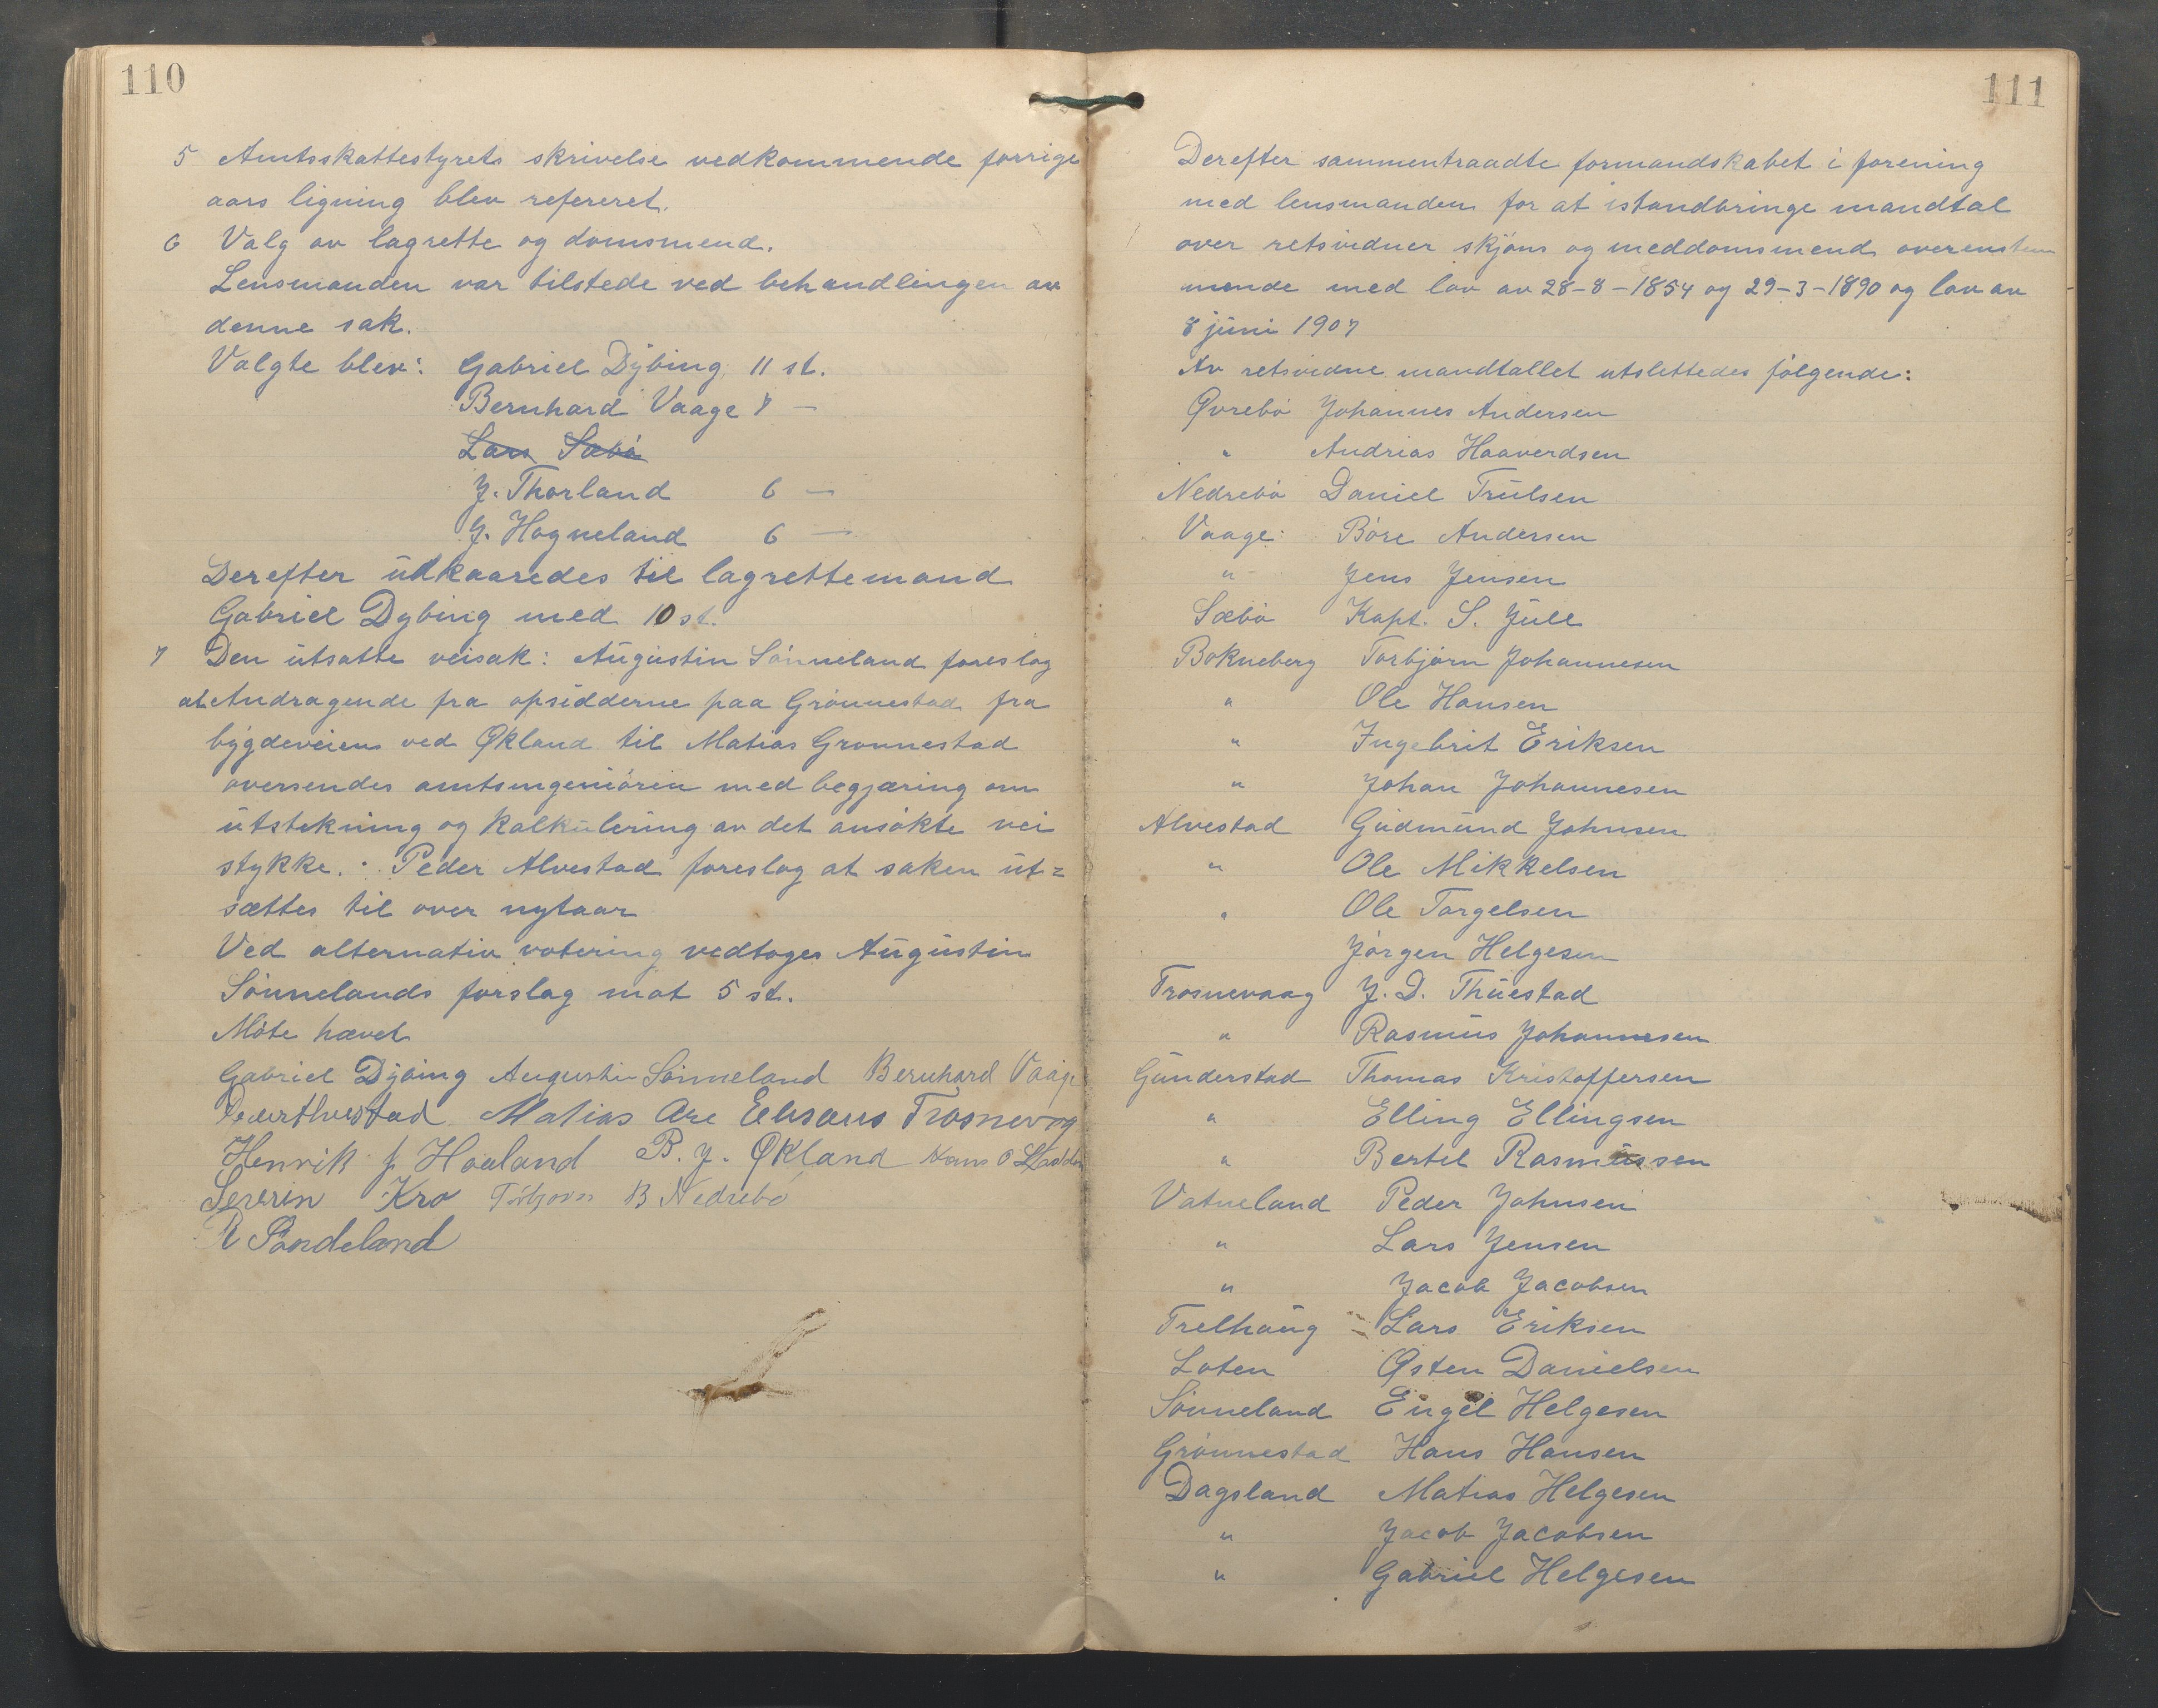 110
5 Amtsskattestyrets skrivelse vedkommende forrige
aars ligning blev refereret.
6 Valg av lagrette og domsmend.
Lensmanden var tilstede ved behandlingen av
denne sak.
Valgte blev: Gabriel Dybing 11 st.
Bernhard Vaage 7 —
Lars Sæbö
J. Thorland 6 —
J. Hogneland 6 —
Derefter udkaaredes til lagrettemand
Gabriel Dybing med 10 st.
7 Den utsatte veisak: Augustin Sönneland foreslog
at Andragende fra opsidderne paa Grönnestad fra
bygdeveien ved Økland til Matias Gronnestad
oversendes amtsingeniören med begjæring om
utstekning og kalkulering av det ansökte vei
stykke. Peder Alvestad foreslog at saken ut=
sættes til over nytaar
Ved alternativ votering vedtoges Augustin
Sönnelands forslag mot 5 st.
Möte hævet
Gabriel Dybing Augustin Sönneland Bernhard Vaage
Peder Alvestad Matias Are Trosnevog
Henrik J Haaland B. J. Økland Hans O
Severin Kro Torbjorn B Nedrebö
R Sandeland
111
Derefter sammentraadte formandskabet i forening
med lensmanden for at istandbringe mandtal
over retsvidner skjöns og meddomsmend overenstem
mende med lov av 28-8-1854 og 29-3-1890 og lov av
8 juni 1907
Av retsvidne mandtallet utslettedes fölgende:
Øvrebö Johannes Andersen
" Andrias Haaverdsen
Nedrebö Daniel Trulsen
Vaage: Böre Andersen
" Jens Jensen
Sæbö Kapt. S. Juell
Bokneberg Torbjörn Johannesen
" Ole Hansen
" Ingebrit Eriksen
" Johan Johannesen
Alvestad Gudmund Johnsen
" Ole Mikkelsen
" Ole Torgelsen
Jörgen Helgesen
Trosnevaag J. D. Thuestad
" Rasmus Johannesen
Gunderstad Thomas Kristoffersen
" Elling Ellingsen
" Bertel Rasmussen
Vatneland Peder Johnsen
" Lars Jensen
" Jacob Jacobsen
Trelhaug Lars Eriksen
Loten Østen Danielsen
Sönneland Engel Helgesen
Grönnestad Hans Hansen
Dagsland Matias Helgesen
" Jacob Jacobsen
" Gabriel Helgesen